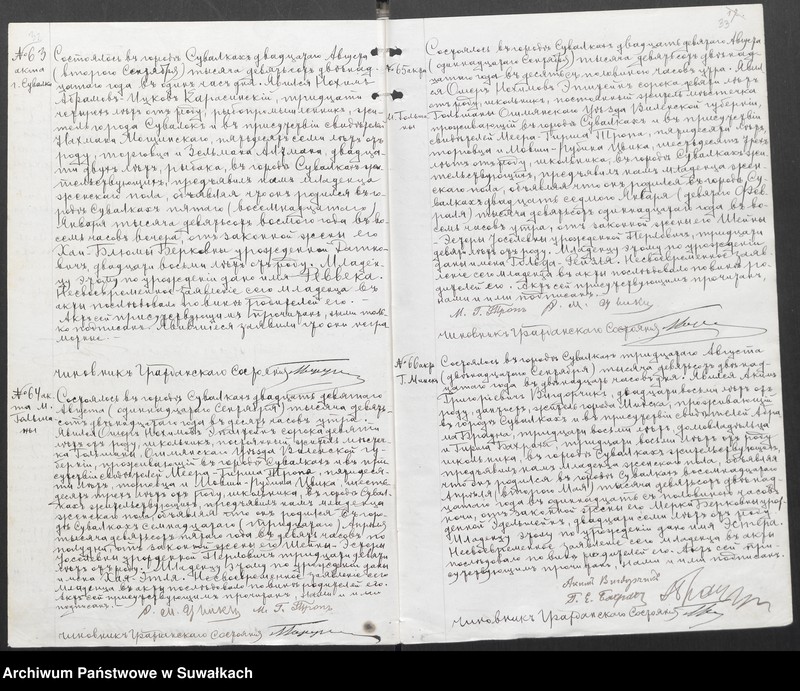 № 63
акта
г. Сувалки
Состоялось въ городѣ Сувалкахъ двадцатаго Августа
(второго Сентября) тысяча девятьсотъ двѣнад-
цатаго года въ одинъ часъ дня. Явился Нохимъ
Абрамовъ-Ицковъ Карасинскій, тридцати
четырехъ лѣтъ отъ роду, жи-
тель города Сувалокъ и въ присутствіи свидѣтелей
пятьдесятъ семи лѣтъ отъ
роду, торговца и двадца-
ти двухъ лѣтъ, рыбака, въ городѣ Сувалкахъ жи-
тельствующихъ, предъявилъ намъ младенца
женскаго пола, объявляя что онъ родился въ го-
родѣ Сувалкахъ пятаго (восемнадцатаго)
Января тысяча девятьсотъ восьмого года въ во-
семь часовъ вечера, отъ законной жены его
Хаи-Блюмы Берковны урожденной
двадцати восьми лѣтъ отъ роду. Младен-
цу этому по урожденіи дано имя Ревека.
Несвоевременное заявленіе сего младенца въ
акты послѣдовало по винѣ родителей его. —
Актъ сей присутствующимъ прочитанъ, нами толь-
ко подписанъ. Явившіеся заявили что они негра-
мотные. —
Чиновникъ Гражданскаго Состоянія
№ 64 ак-
та М.
Гольша-
ны
Состоялось въ городѣ Сувалкахъ двадцать девятаго
Августа (одиннадцатаго Сентября) тысяча девять-
сотъ двѣнадцатаго года въ десять часовъ утра.
Явился Ошеръ Нохимовъ сорока девяти
лѣтъ отъ роду, школьникъ, постоянный житель мѣстеч-
ка Гольшаны, Ошмянскаго Уѣзда Виленской гу-
берніи, проживающій въ городѣ Сувалкахъ и въ при-
сутствіи свидѣтелей Меера-Гирша Тропа, пятидеся-
ти лѣтъ, торговца и Мовши-Рубина Цвика, шесть-
десятъ трехъ лѣтъ отъ роду, школьника, въ городѣ Сувал-
кахъ жительствующихъ, предъявилъ намъ младенца
женскаго пола, объявляя что онъ родился въ горо-
дѣ Сувалкахъ семнадцатаго (тридцатаго) Апрѣля
тысяча девятьсотъ пятаго года въ девять часовъ по
полудни, отъ законной жены его Шейны-Эстеры
Іоселевны урожденной Перловичъ тридцати девяти
лѣтъ отъ роду. Младенцу этому по урожденіи даны
имена Хая-Этля. Несвоевременное заявленіе сего
младенца въ акты послѣдовало по винѣ родителей его.
Актъ сей присутствующимъ прочитанъ, нами и ими
подписанъ.
Р. М. Цвикъ М. Г. Тропъ
Чиновникъ Гражданскаго Состоянія
33
№ 65 акта
М. Гольша-
ны
Состоялось въ городѣ Сувалкахъ двадцать девятаго Августа
(одиннадцатаго Сентября) тысяча девятьсотъ двѣнад-
цатаго года въ десять съ половиною часовъ утра. Явил-
ся Ошеръ Нохимовъ сорока девяти лѣтъ
отъ роду, школьникъ, постоянный житель мѣстечка
Гольшаны Ошмянскаго Уѣзда Виленской губерніи,
проживающій въ городѣ Сувалкахъ и въ присутствіи
свидѣтелей Меера-Гирша Тропа, пятидесяти лѣтъ,
торговца и Мовши-Рубина Цвика, шестьдесятъ трехъ
лѣтъ отъ роду, школьника, въ городѣ Сувалкахъ жи-
тельствующихъ, предъявилъ намъ младенца жен-
скаго пола, объявляя что онъ родился въ городѣ Су-
валкахъ двадцать седьмого Января (девятаго Фев-
раля) тысяча девятьсотъ одиннадцатаго года въ во-
семь часовъ утра, отъ законной жены его Шейны-
Эстеры Іоселевны урожденной Перловичъ, тридцати
девяти лѣтъ отъ роду. Младенцу этому по урожденіи
даны имена Гольда-Рейзля. Несвоевременное заяв-
леніе сего младенца въ акты послѣдовало по винѣ ро-
дителей его. Актъ сей присутствующимъ прочитанъ,
нами и ими подписанъ.
М. Г. Тропъ Р. М. Цвикъ
Чиновникъ Гражданскаго Состоянія
№ 66 акта
Г. Минскъ
Состоялось въ городѣ Сувалкахъ тридцатаго Августа
(двѣнадцатаго Сентября) тысяча девятьсотъ двѣнад-
цатаго года въ двѣнадцать часовъ дня. Явился Акимъ
Григорьевичъ Выгодчикъ, двадцати восьми лѣтъ отъ
роду, дантистъ, житель города Минска, проживающій
въ городѣ Сувалкахъ и въ присутствіи свидѣтелей Абра-
ма тридцати восьми лѣтъ, домовладѣльца
и Гирша тридцати восьми лѣтъ отъ роду
школьника, въ городѣ Сувалкахъ жительствующихъ,
предъявилъ намъ младенца женскаго пола, объявляя
что онъ родился въ городѣ Сувалкахъ девятнадцатаго
Апрѣля (второго Мая) тысяча девятьсотъ двѣнад-
цатаго года въ одиннадцать съ половиною часовъ
ночи, отъ законной жены его Мерки Берковны урож-
денной Эдельштейнъ, двадцати семи лѣтъ отъ роду.
Младенцу этому по урожденіи дано имя Эстера.
Несвоевременное заявленіе сего младенца въ акты
послѣдовало по винѣ родителей его. Актъ сей при-
сутствующимъ прочитанъ, нами и ими подписанъ.
Акимъ Выгодчикъ
Чиновникъ Гражданскаго Состоянія
Archiwum Państwowe w Suwałkach